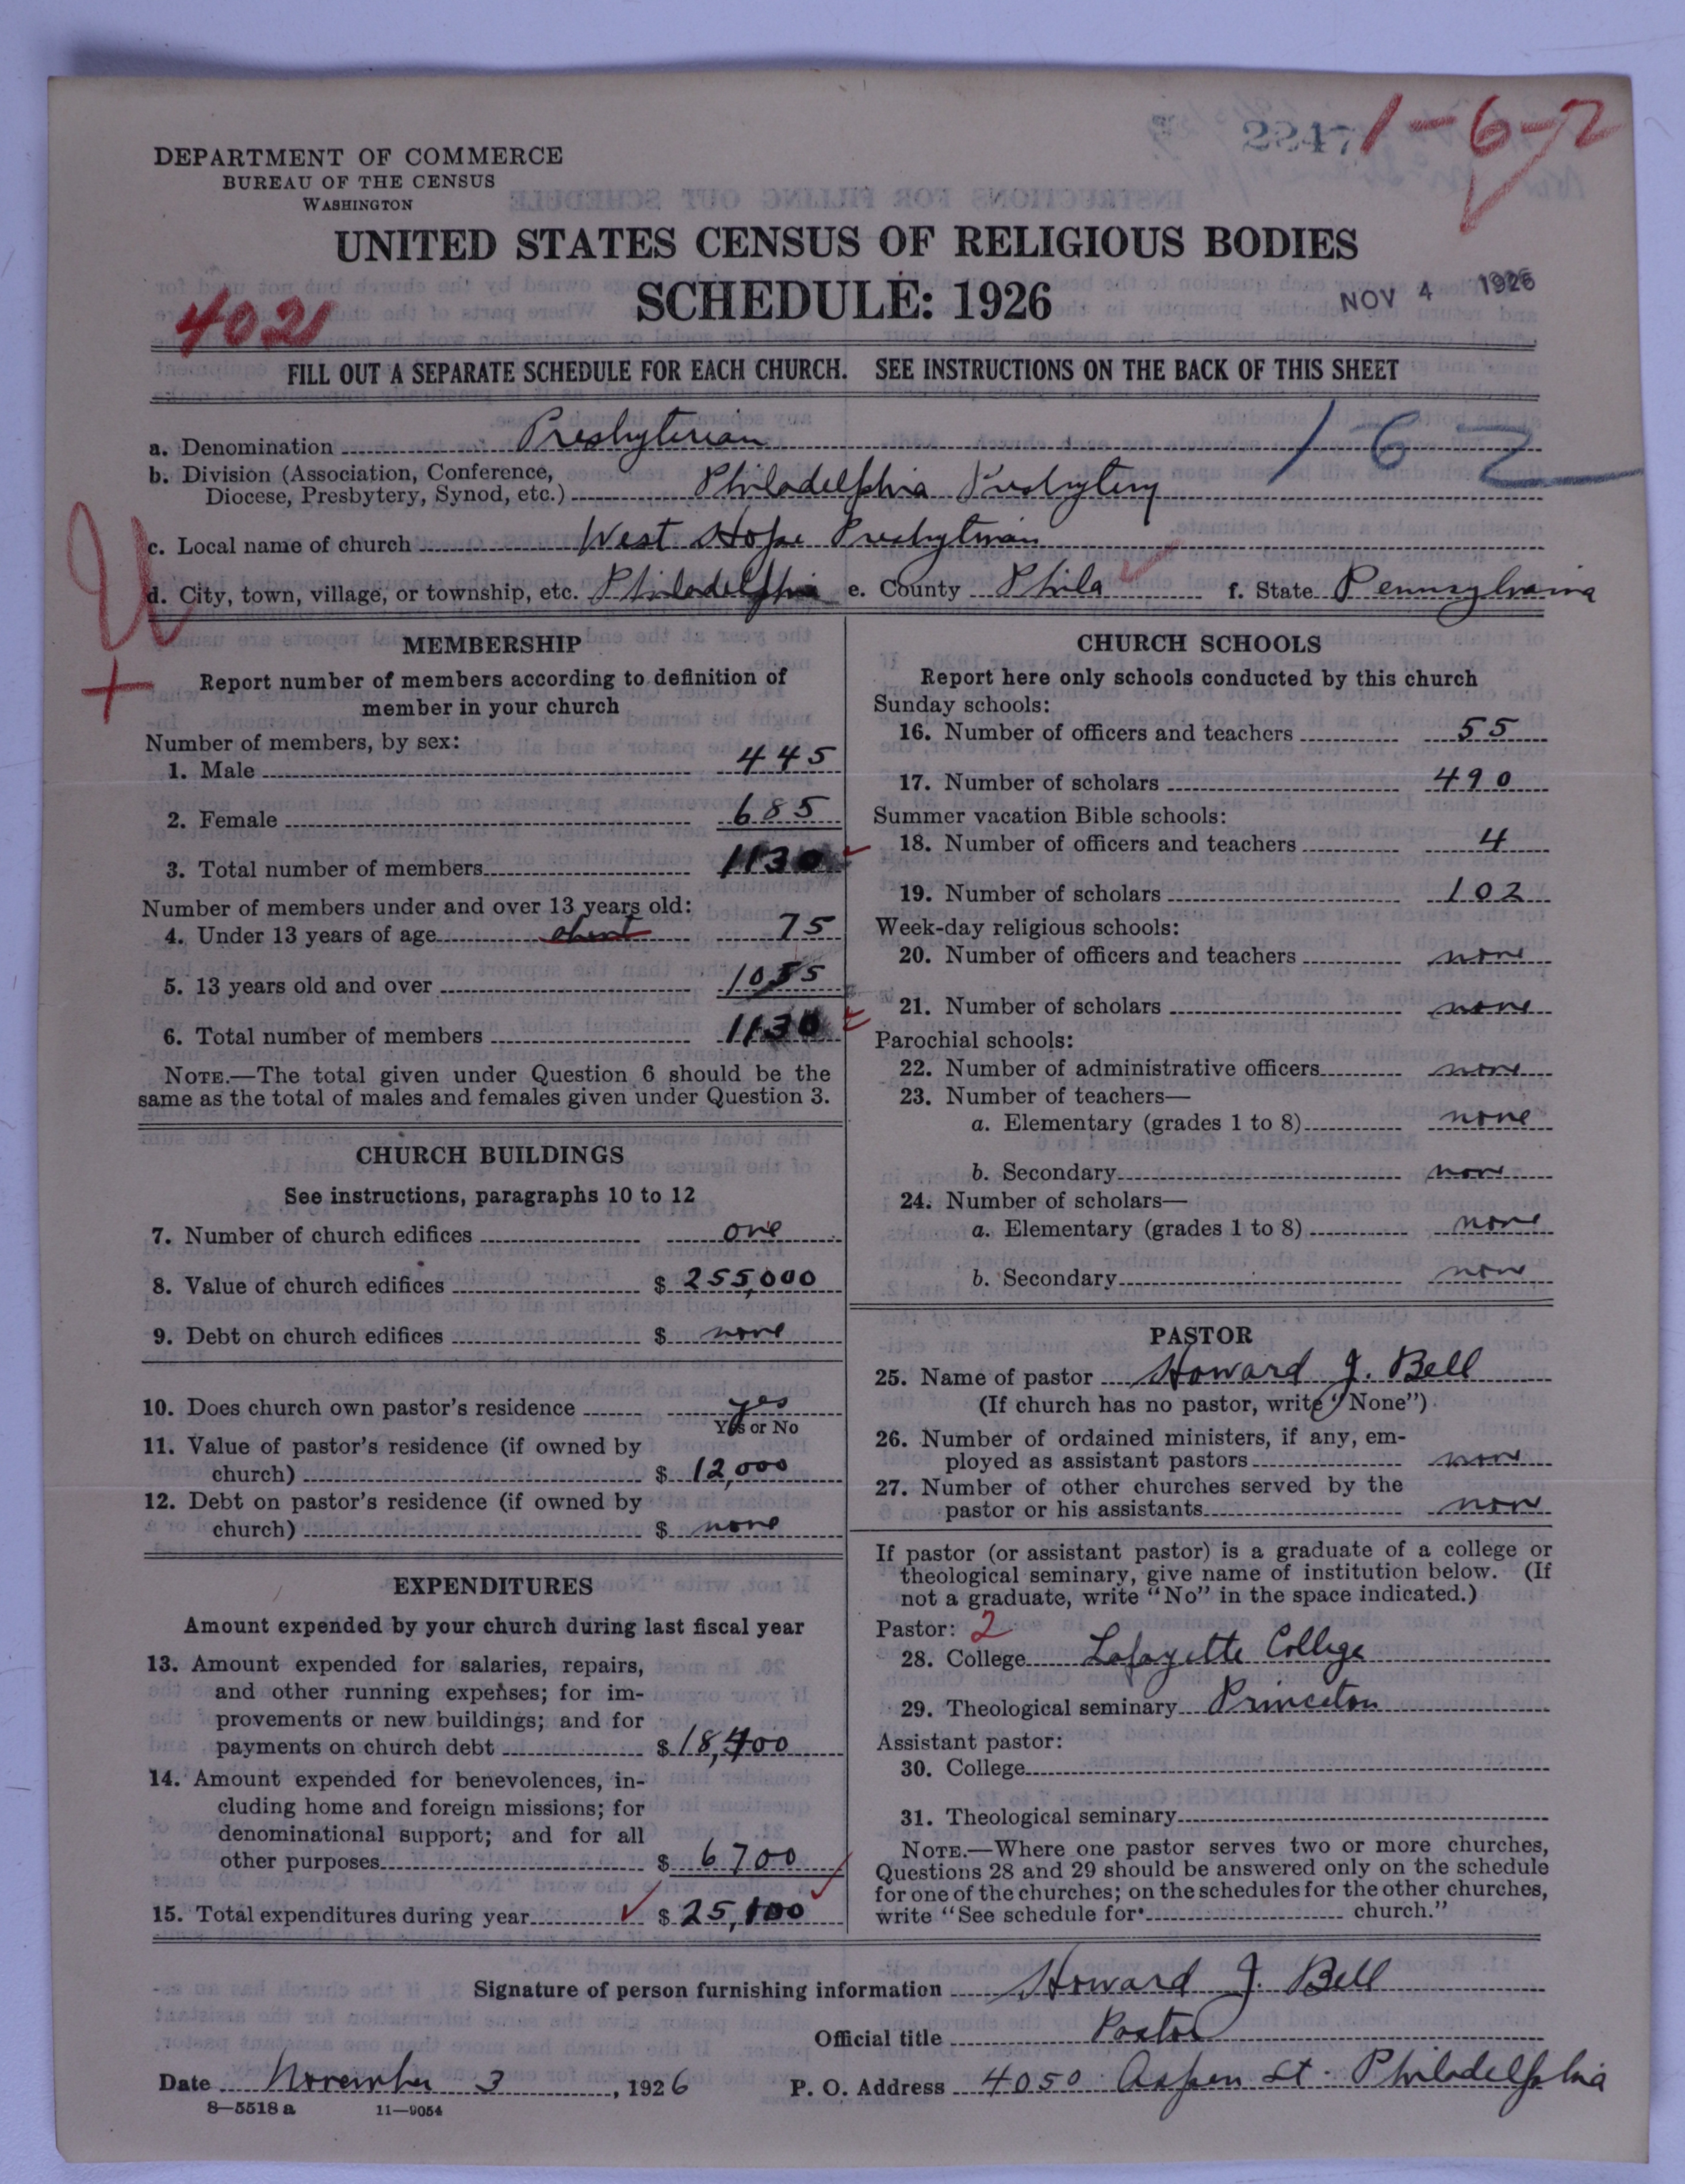 2247
1-6-2
DEPARTMENT OF COMMERCE
BUREAU OF THE CENSUS
WASHINGTON
UNITED STATES CENSUS OF RELIGIOUS BODIES
SCHEDULE: 1926
NOV 4 1926
402
FILL OUT A SEPARATE SCHEDULE FOR EACH CHURCH. SEE INSTRUCTIONS ON THE BACK OF THIS SHEET
a. Denomination Presbyterian
162
b. Division (Association, Conference,
Diocese, Presbytery, Synod, etc.) Philadelphia Presbytery
c. Local name of church West Hope Presbyterian
d. City, town, village, or township, etc. Philadelphia e. County Phila f. State Pennsylvania
U
+
MEMBERSHIP
Report number of members according to definition of
member in your church
Number of members, by sex:
1. Male 445
2. Female 685
3. Total number of members 1130
Number of members under and over 13 years old:
4. Under 13 years of age about 75
5. 13 years old and over 1055
6. Total number of members 1130
NOTE.—The total given under Question 6 should be the
same as the total of males and females given under Question 3.
CHURCH BUILDINGS
See instructions, paragraphs 10 to 12
7. Number of church edifices one
8. Value of church edifices $ 255,000
9. Debt on church edifices $ none
10. Does church own pastor's residence yes
Yes or No
11. Value of pastor's residence (if owned by
church) $ 12,000
12. Debt on pastor's residence (if owned by
church) $ none
EXPENDITURES
Amount expended by your church during last fiscal year
13. Amount expended for salaries, repairs,
and other running expenses; for im-
provements or new buildings; and for
payments on church debt $ 18,400
14. Amount expended for benevolences, in-
cluding home and foreign missions; for
denominational support; and for all
other purposes $ 6700
15. Total expenditures during year $ 25,100
CHURCH SCHOOLS
Report here only schools conducted by this church
Sunday schools:
16. Number of officers and teachers 55
17. Number of scholars 490
Summer vacation Bible schools:
18. Number of officers and teachers 4
19. Number of scholars 102
Week-day religious schools:
20. Number of officers and teachers none
21. Number of scholars none
Parochial schools:
22. Number of administrative officers none
23. Number of teachers—
a. Elementary (grades 1 to 8) none
b. Secondary none
24. Number of scholars—
a. Elementary (grades 1 to 8) none
b. Secondary none
PASTOR
25. Name of pastor Howard J. Bell
(If church has no pastor, write "None")
26. Number of ordained ministers, if any, em-
ployed as assistant pastors none
27. Number of other churches served by the
pastor or his assistants none
If pastor (or assistant pastor) is a graduate of a college or
theological seminary, give name of institution below. (If
not a graduate, write "No" in the space indicated.)
Pastor: 2
28. College Lafayette College
29. Theological seminary Princeton
Assistant pastor:
30. College
31. Theological seminary
NOTE.—Where one pastor serves two or more churches,
Questions 28 and 29 should be answered only on the schedule
for one of the churches; on the schedules for the other churches,
write "See schedule for church."
Signature of person furnishing information Howard J. Bell
Official title Pastor
Date November 3, 1926 P. O. Address 4050 Aspen St. Philadelphia
8—5518 a 11—9054